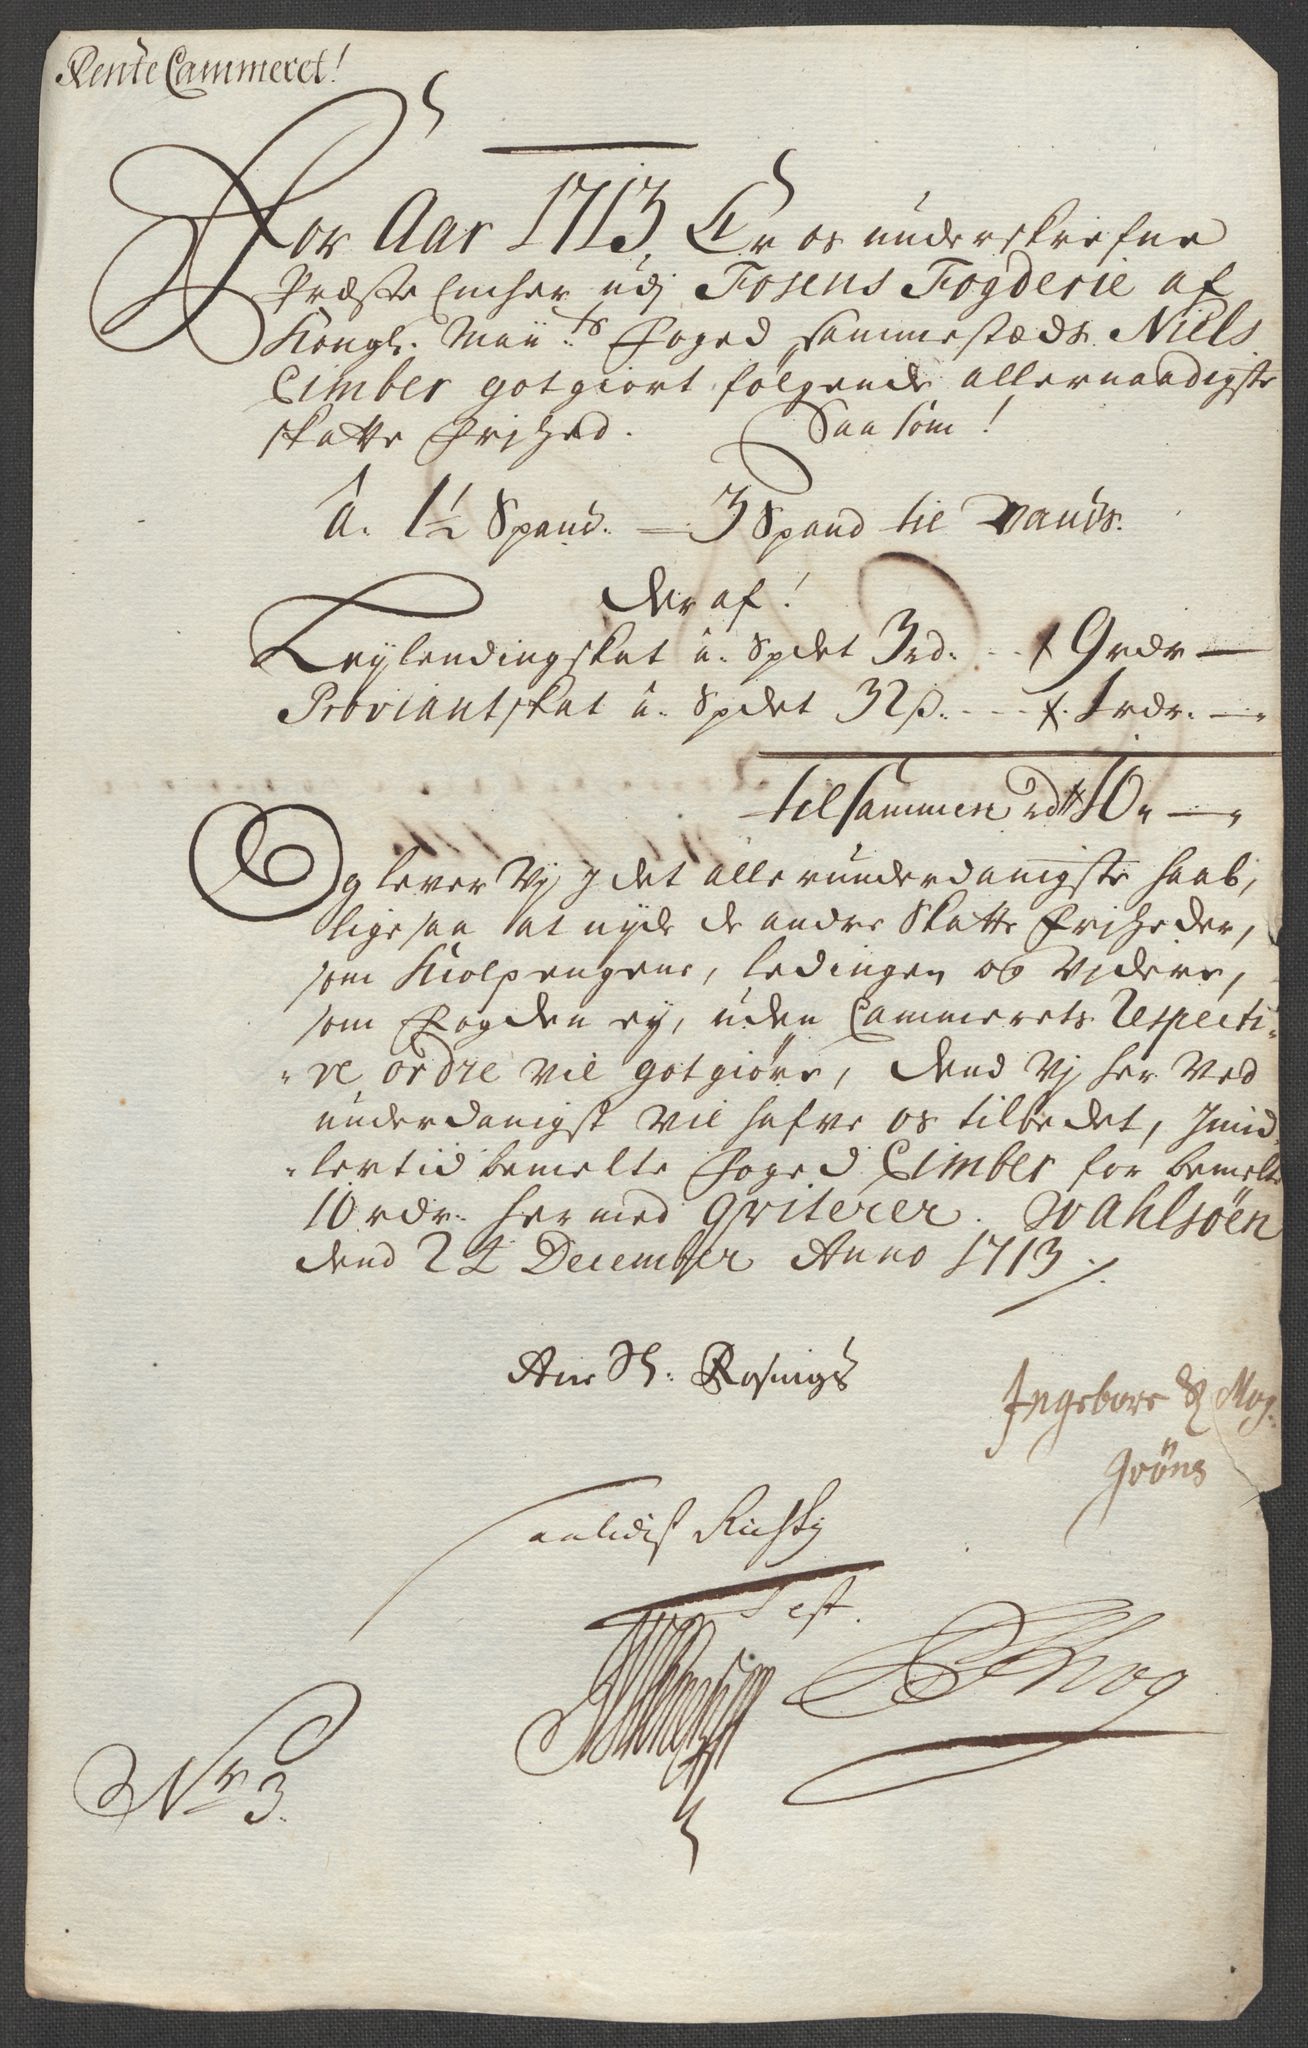 Rente Cammeret!
For Aar 1713, Er os underskrefne
Præste Encher udj Fosens Fogderie af
Kongl. May:ts Foged sammestæds Niels
Cimber gotgiort følgende allernaadigste
skatte Frjhed. Saa som!
â. 1½ Spand. — 3 Spand til Mands.
Der af!
Leylendingskat â. Spdet 3rd. - - 9rdr —
Proviantskat â. Spdet 32ß. - - - 1rdr. —
tilsammen rdr 10 „ — „
Og lever Vj J det allerunderdanigste haab,
lige saa at nyde de andre Skatte Frjheder,
som Kiolpengene, Ledingen og Vjdere,
som Fogden ey, uden Cammerets Respecti-
-ve ordre vil gotgiøre, Dend Vj her Ved
underdanigst vil hafve os tilbedet, Jmid-
-lertid bemelte Foged Cimber for bemelte
10 rdr. her med Qviterer. Wahlsöen
Dend 24 December Anno 1713.
Ane Sl: Rosings
Ingebore Sl Mog.
Gröns
Test.
Nr 3.